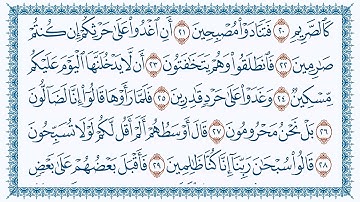 كَالصَّرِيمِ ٢٠ فَتَنَادَوْا مُصْبِحِينَ ٢١ أَنِ اغْدُوا عَلَىٰ حَرْثِكُمْ إِن كُنتُمْ
صَارِمِينَ ٢٢ فَانطَلَقُوا وَهُمْ يَتَخَافَتُونَ ٢٣ أَن لَّا يَدْخُلَنَّهَا الْيَوْمَ عَلَيْكُم
مِّسْكِينٌ ٢٤ وَغَدَوْا عَلَىٰ حَرْدٍ قَادِرِينَ ٢٥ فَلَمَّا رَأَوْهَا قَالُوا إِنَّا لَضَالُّونَ
٢٦ بَلْ نَحْنُ مَحْرُومُونَ ٢٧ قَالَ أَوْسَطُهُمْ أَلَمْ أَقُل لَّكُمْ لَوْلَا تُسَبِّحُونَ
٢٨ قَالُوا سُبْحَانَ رَبِّنَا إِنَّا كُنَّا ظَالِمِينَ ٢٩ فَأَقْبَلَ بَعْضُهُمْ عَلَىٰ بَعْضٍ